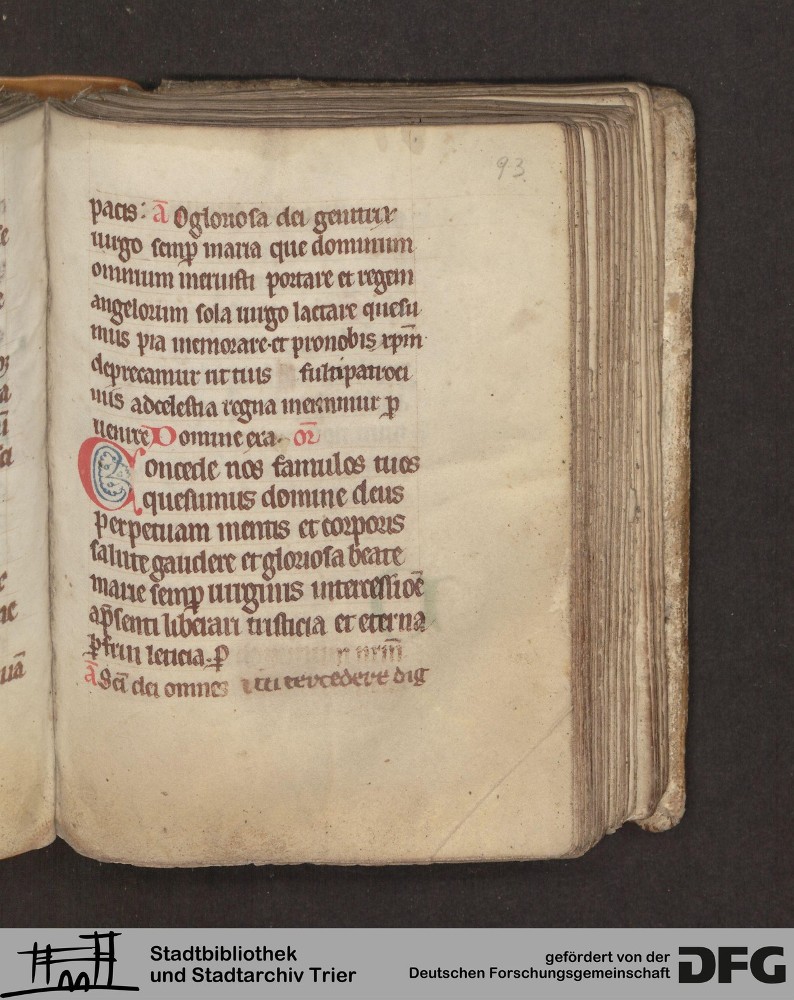 93
pacis: a̅ O gloriosa dei genitrix
uirgo semꝑ maria que dominum
omnium meruisti portare et regem
angelorum sola uirgo lactare quesu
mus pia memorare et pronobis xpm̅
deprecamur ut tuis fultipatroci
niis adcelestia regna mereamur ꝑ
uenire Domine exa. or̅
Concede nos famulos tuos
quesumus domine deus
perpetuam mentis et corporis
salute gaudere et gloriosa beate
marie semꝑ uirginis intercessioe̅
ap̅senti liberari tristicia et eterna
ꝑfrui leticia. ꝑ
a̅ Sc̅i dei omnes dig
Stadtbibliothek
und Stadtarchiv Trier
gefördert von der
Deutschen Forschungsgemeinschaft
DFG